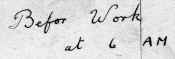 Befor Work
at 6 AM